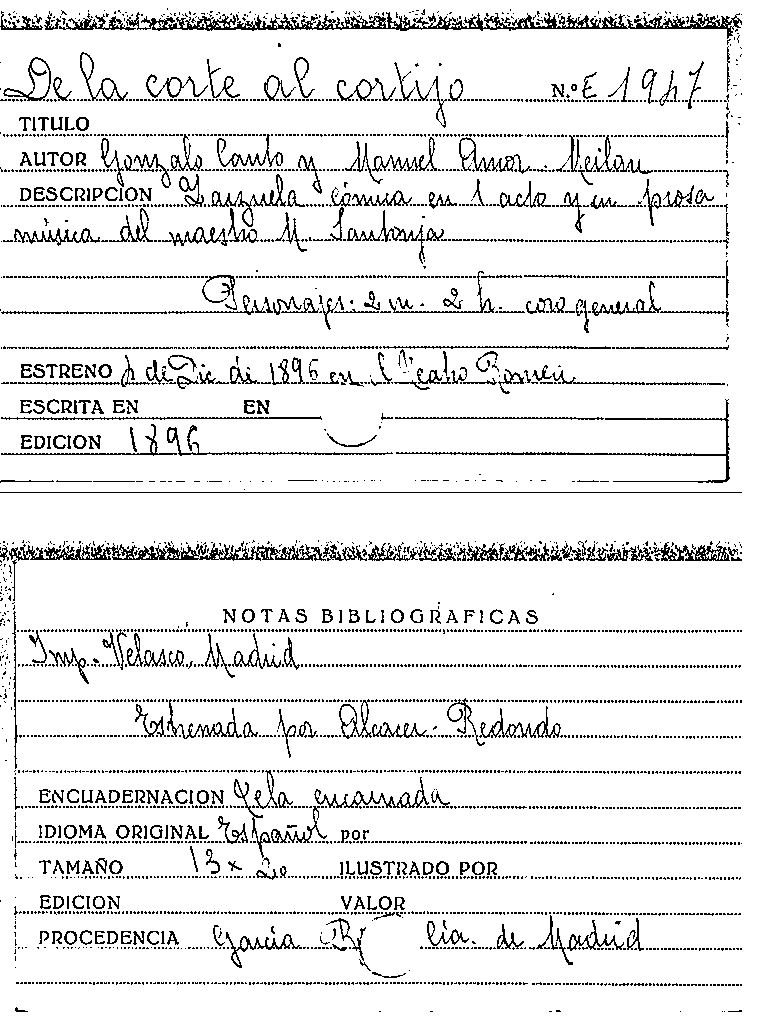 De la corte al cortijo N.º E 1947
TITULO
AUTOR Gonzalo Canto y Manuel Amor Meilan
DESCRIPCION Zarzuela cómica en 1 acto y en prosa
música del maestro M. Santonja
Personajes: 2 m. 2 h. coro general
ESTRENO de Dic de 1896 en el Teatro Romea
ESCRITA EN EN
EDICION 1896
NOTAS BIBLIOGRAFICAS
Imp. Velasco, Madrid
Estrenada por Alcacer - Redondo
ENCUADERNACION Tela encarnada
IDIOMA ORIGINAL Español por
TAMAÑO 13 x 20 ILUSTRADO POR
EDICION VALOR
PROCEDENCIA García Cía. de Madrid